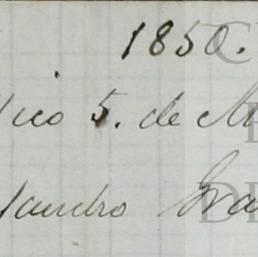 1850.
ico 5. de M
jandro Gra